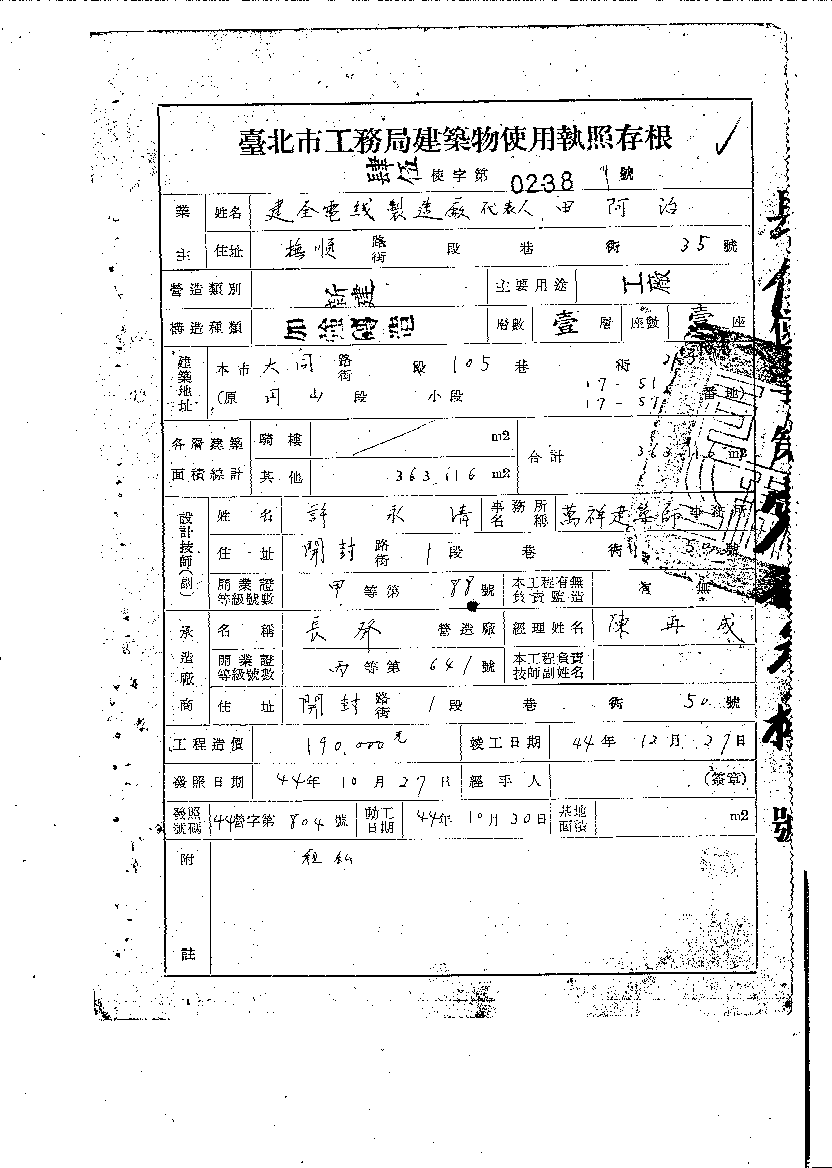 臺北市工務局建築物使用執照存根
肆伍使字第0238號
業主 姓名 建全電线製造廠代表人 田阿治
住址 撫順路街 段 巷 街 35號
營造類別 新建 主要用途 工廠
構造種類 加強磚造 層數 壹層 座數 壹座
建築地址 本市大同路街 段 105巷 街
(原 円山段 小段 17-51 番地)
17-57
各層建築面積總計 騎樓 m2 合計 363.616 m2
其他 363.616 m2
設計技師(副) 姓名 許永清 事務所名稱 萬祥建築師事務所
住址 開封路街 1段 巷 街 50號
開業證等級號數 甲等第88號 本工程有無負責監造 有 無
承造廠商 名稱 長發營造廠 經理姓名 陳再成
開業證等級號數 丙等第641號 本工程負責技師副姓名
住址 開封路街 1段 巷 街 50號
工程造價 190,000元 竣工日期 44年12月27日
發照日期 44年10月27日 經手人 (簽章)
發照號碼 44營字第804號 動工日期 44年10月30日 基地面積 m2
附註